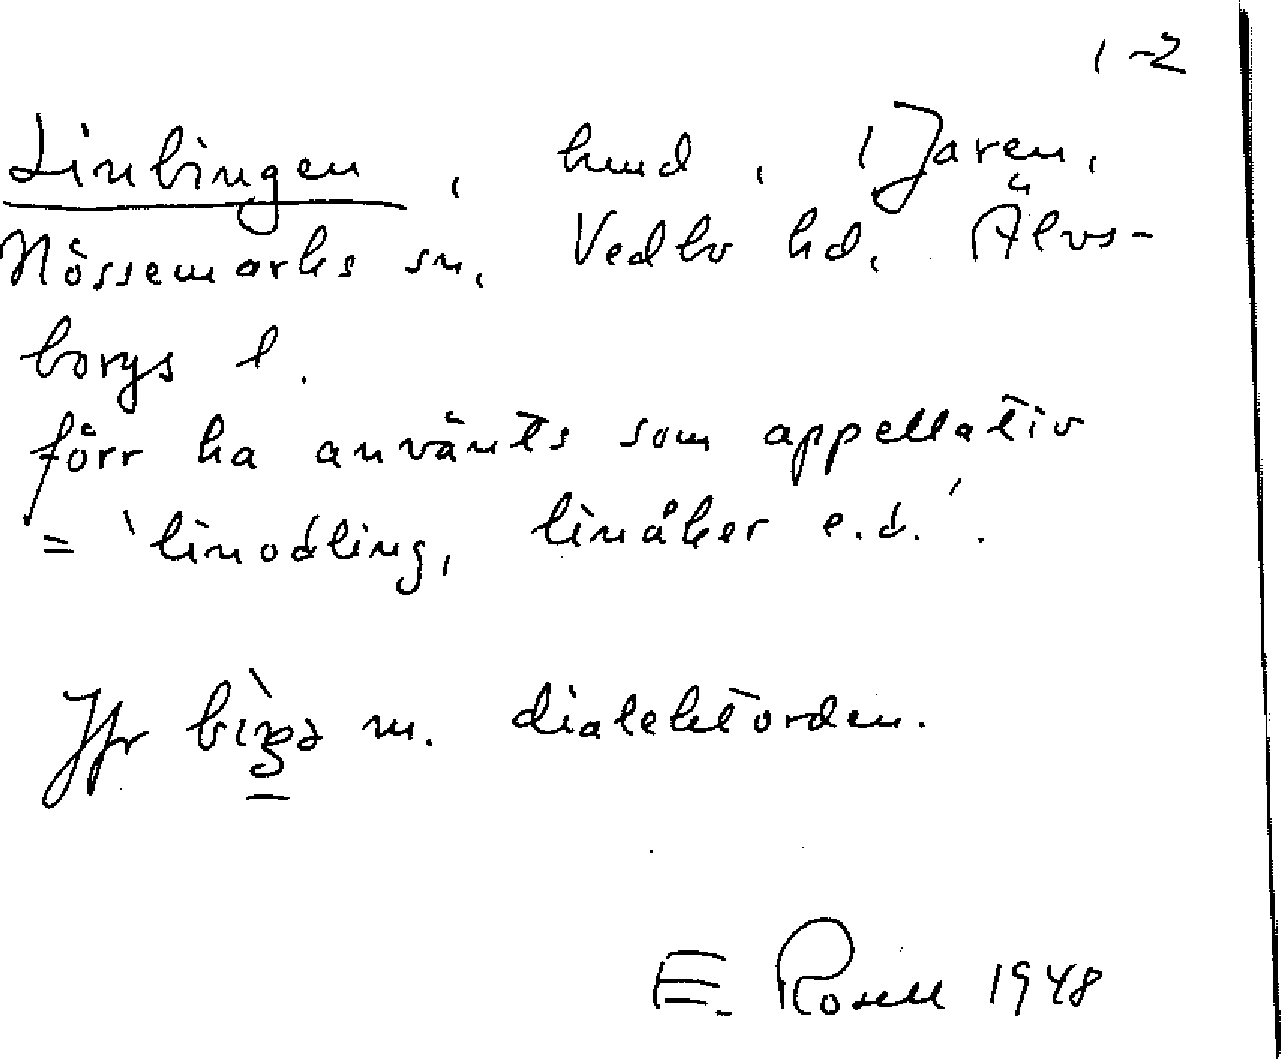 1-2
Linbingen, hmd, 1 Jaren,
Nössemarks sn, Vedbo hd, Älvs-
borgs l.
förr ha använts som appellativ
= 'linodling, linåker e.d.'.
Jfr bìŋə m. dialektorden.
E. Rosell 1948